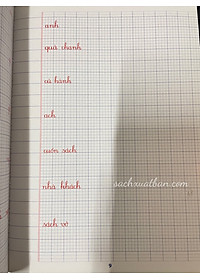 anh
quả chanh
cà hành
ach
cuốn sách
nhà khách
sách vở
sachxuatban.com